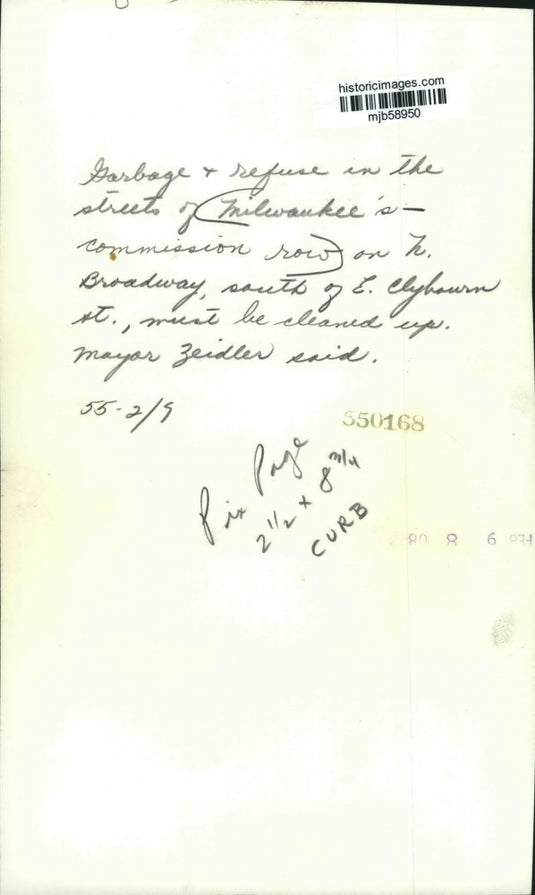 historicimages.com
mjb58950
Garbage + refuse in the
streets of Milwaukee's-
commission row on N.
Broadway, south of E. Clybourn
st., must be cleaned up.
Mayor Zeidler said.
55-2/9
550168
Pix Page
2 1/2 x 8 3/4
CURB
8 6